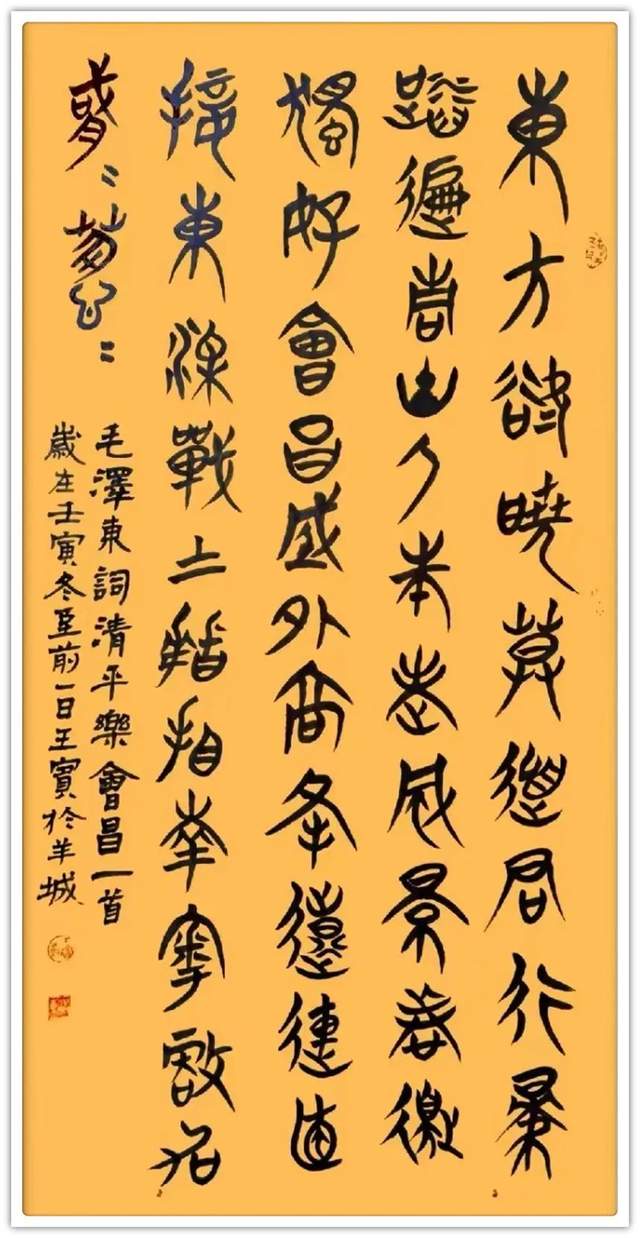 東方欲曉莫道君行早
踏遍青山人未老風景這邊
獨好會昌城外高峰顛連直
接東溟戰士指看南粵更加
鬱〻蔥〻
毛澤東詞清平樂會昌一首
歲在壬寅冬至前一日王賓於羊城